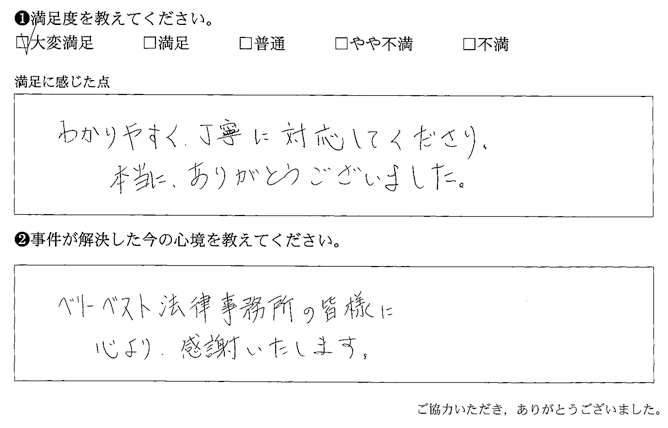 ❶満足度を教えてください。
☑大変満足 □満足 □普通 □やや不満 □不満
満足に感じた点
わかりやすく、丁寧に対応してくださり、
本当に、ありがとうございました。
❷事件が解決した今の心境を教えてください。
ベリーベスト法律事務所の皆様に
心より、感謝いたします。
ご協力いただき，ありがとうございました。